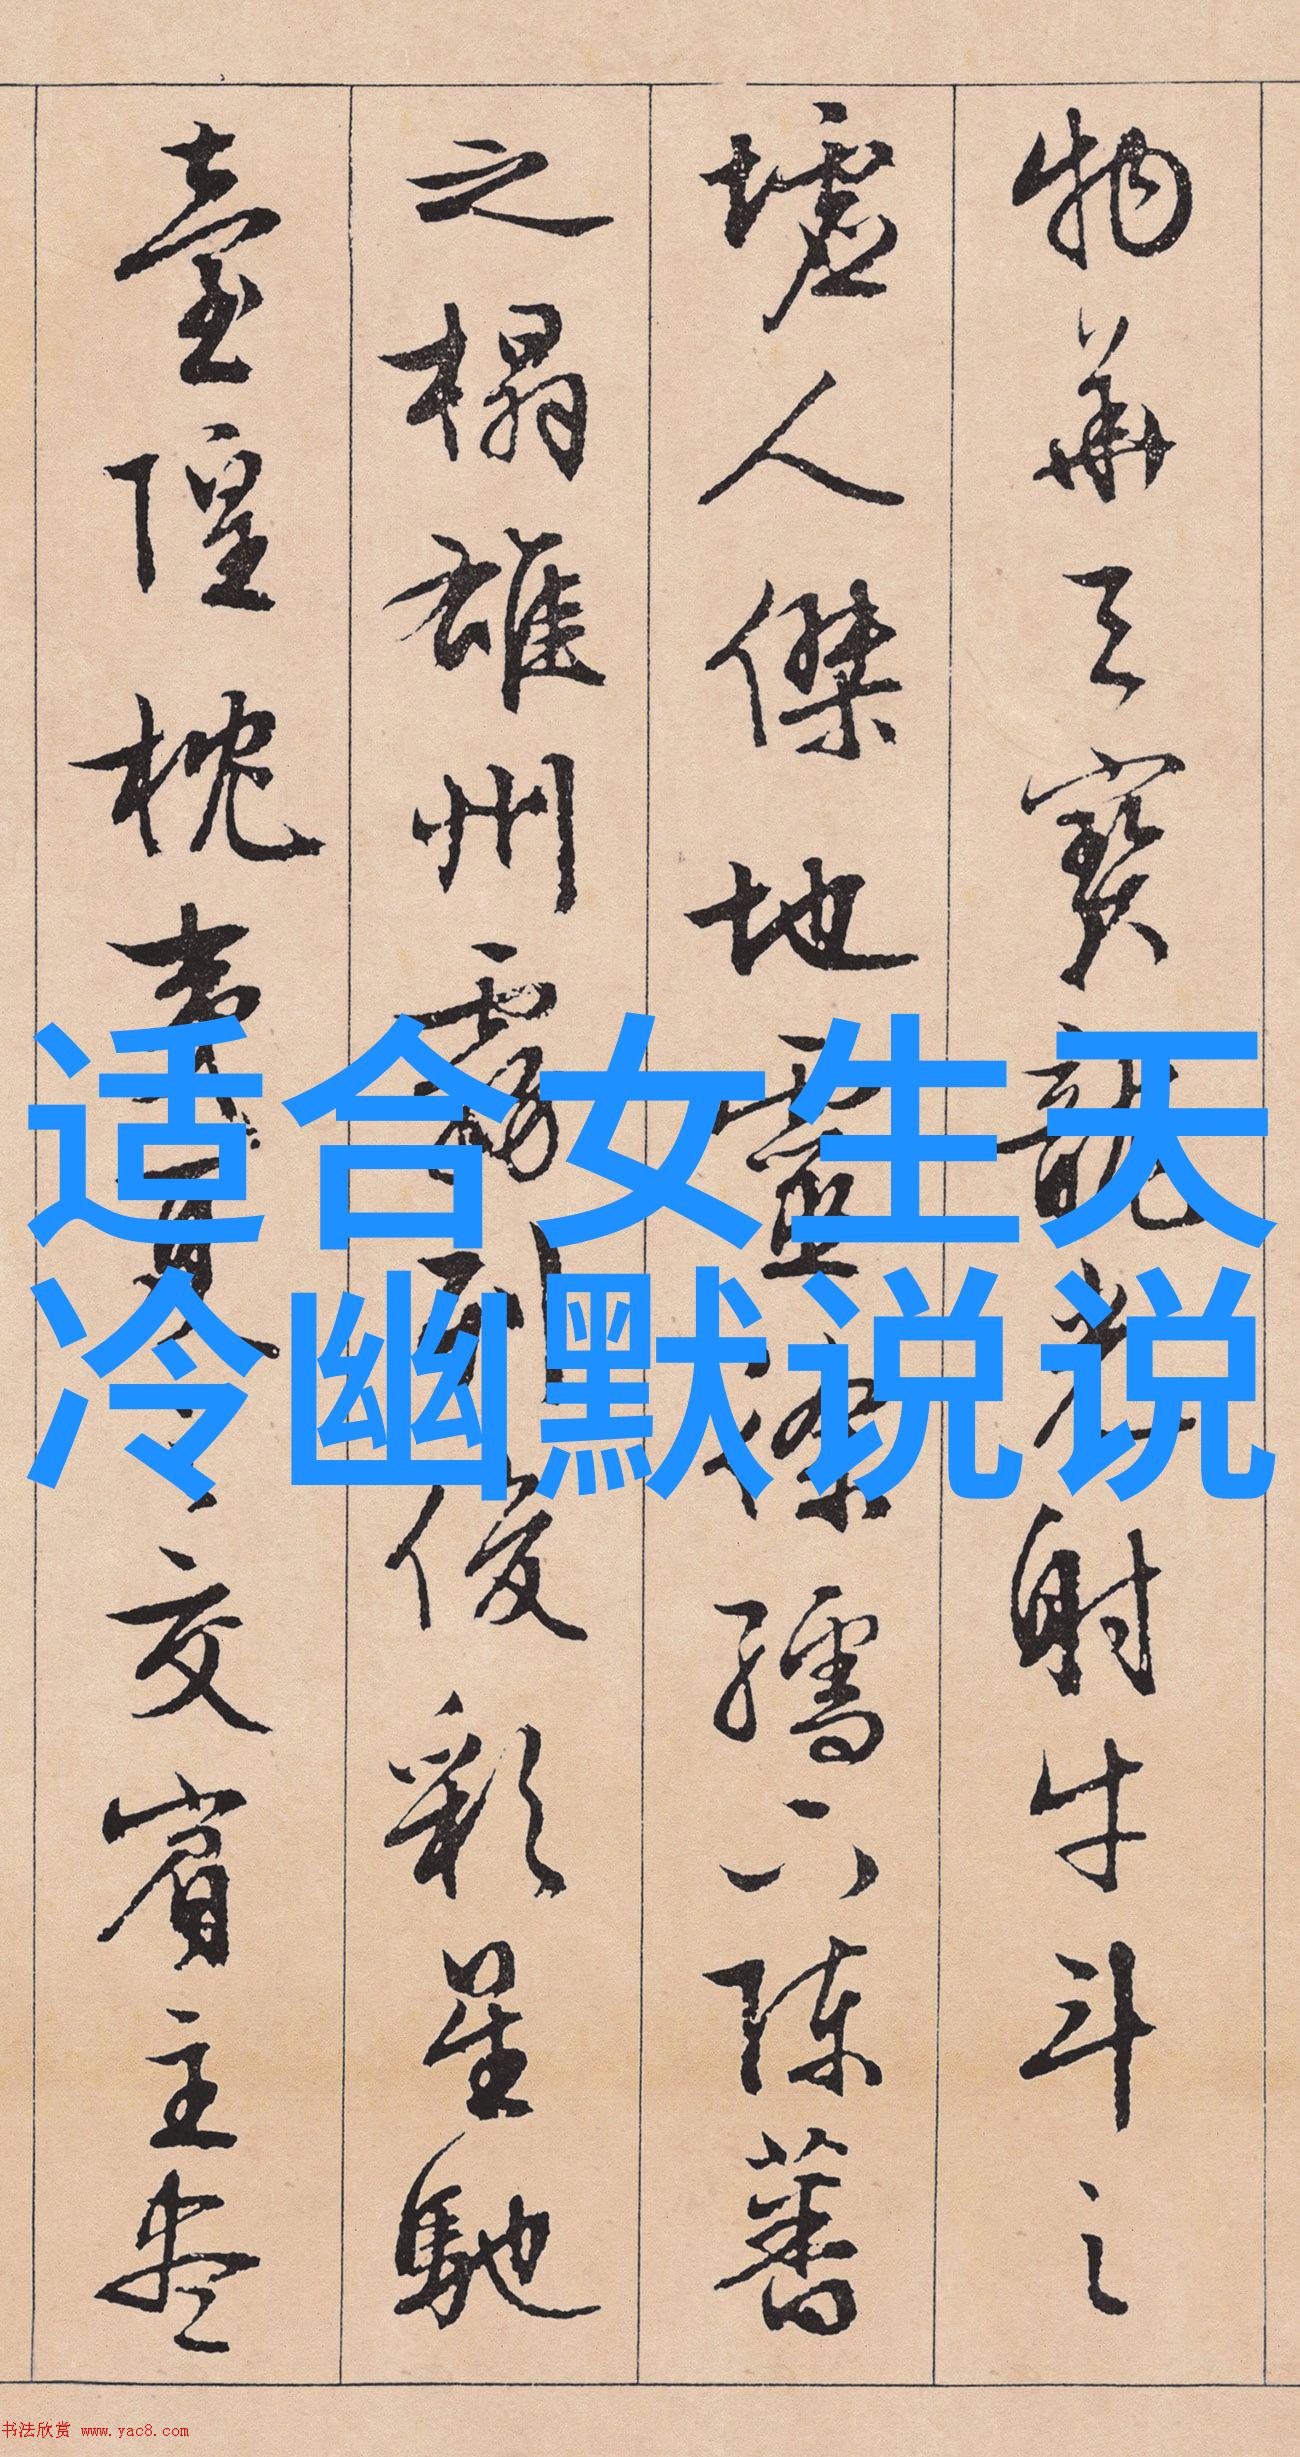 物華天寶龍光射牛斗之
墟人傑地靈徐孺下陳蕃
之榻雄州霧列俊彩星馳
臺隍枕夷夏之交賓主盡
适合女生天
冷幽默说说
书法欣赏 www.yac8.com